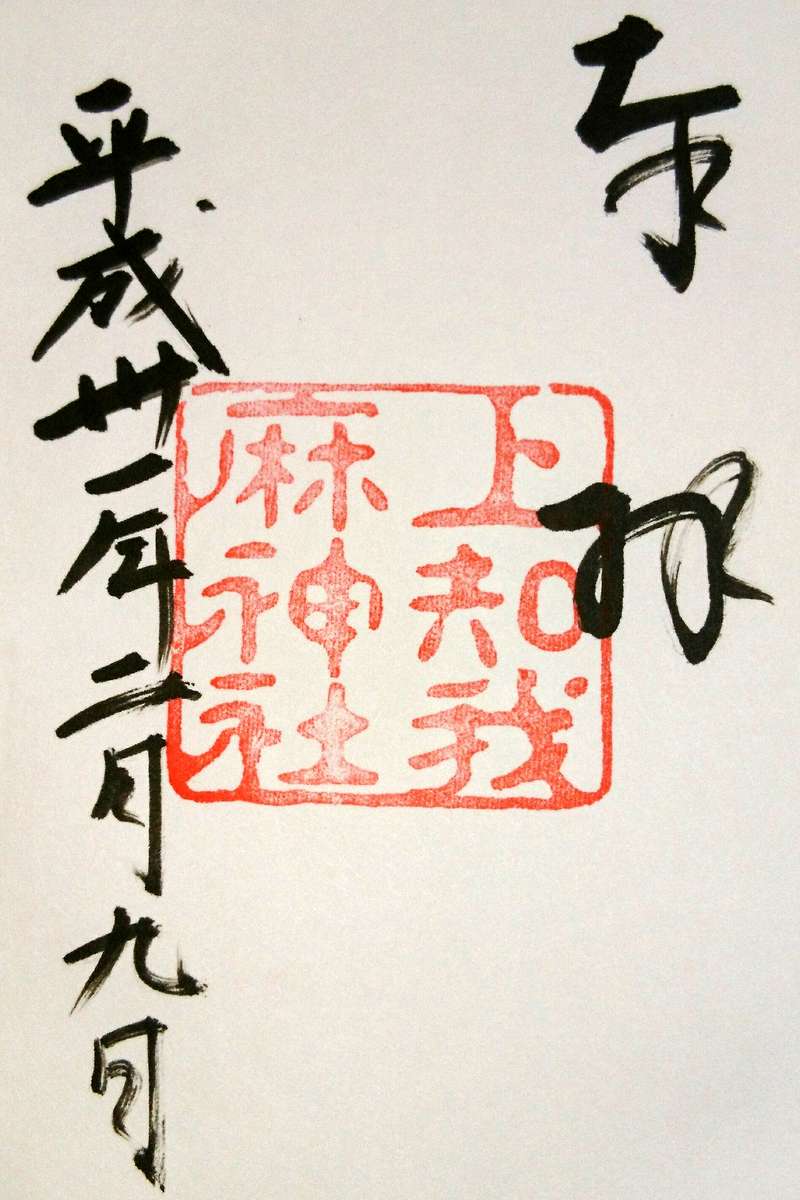 奉拝
上知我
麻神社
平成卅一年二月九日